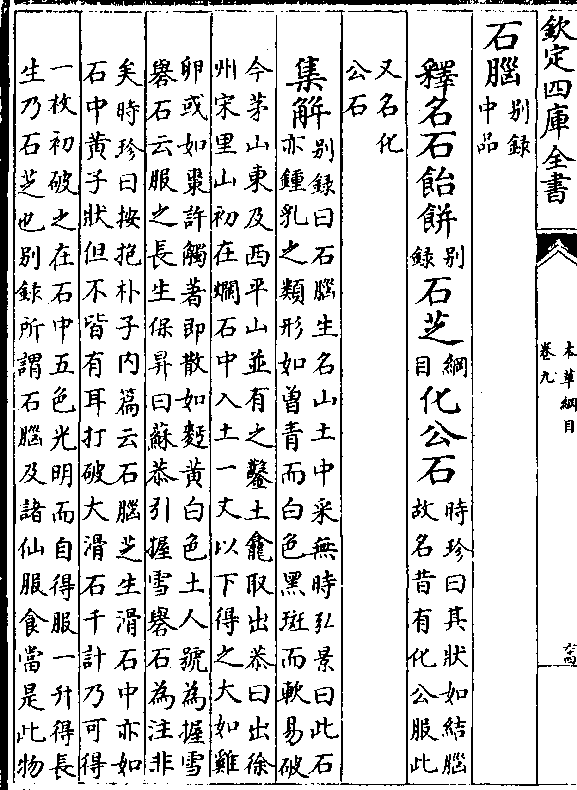 欽定四庫全書
本草綱目
卷九
六四
石腦别録
中品
釋名石飴餅别
録石芝綱
目化公石時珍曰其狀如結腦
故名昔有化公服此
又名化
公石
集解别録曰石腦生名山土中采無時弘景曰此石
亦鍾乳之類形如曾青而白色黑斑而軟易破
今茅山東及西平山並有之鑿土龕取出恭曰出徐
州宋里山初在爛石中入土一丈以下得之大如雞
卵或如棗許觸著即散如麪黄白色土人號為握雪
礜石云服之長生保昇曰蘇恭引握雪礜石為注非
矣時珍曰按抱朴子内篇云石腦芝生滑石中亦如
石中黄子狀但不皆有耳打破大滑石千計乃可得
一枚初破之在石中五色光明而自得服一升得長
生乃石芝也别録所謂石腦及諸仙服食當是此物